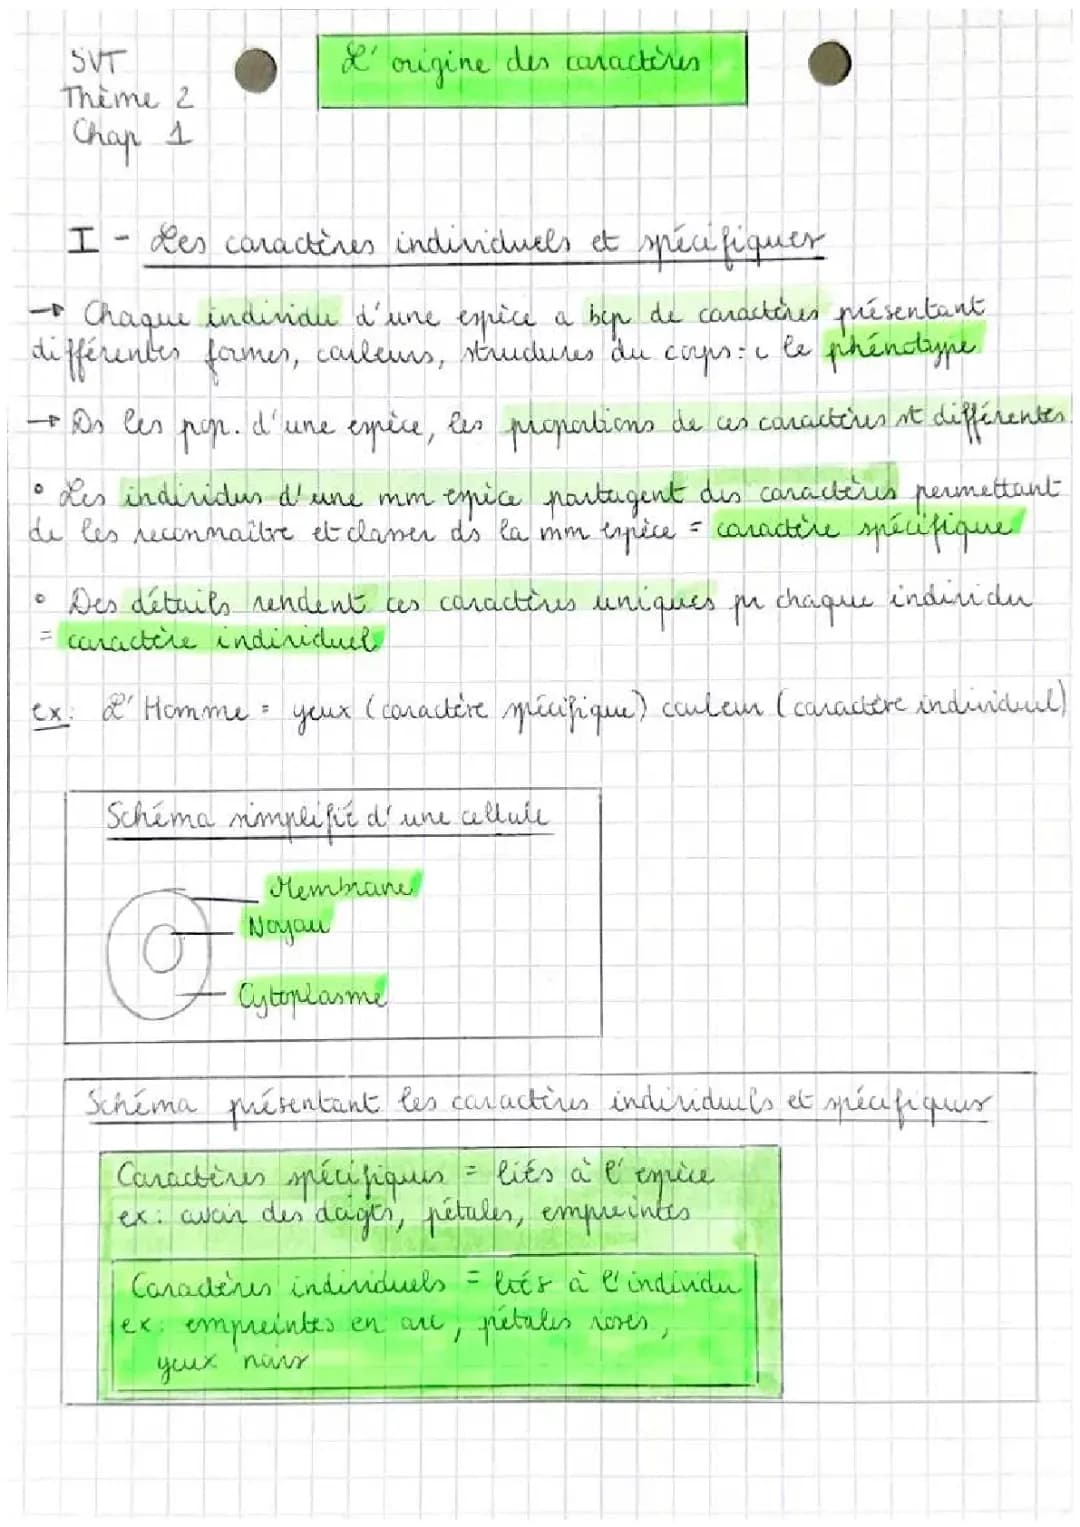 SVT
Thème 2
Chap 1
L'origine des caractères
I - Les caractères individuels et spécifiques
→ Chaque individu d'une espèce a bcp de caractères présentant
différentes formes, couleurs, structures du corps : c le phénotype
→ Ds les pop. d'une espèce, les proportions de ces caractères st différentes.
° Les individus d'une mm espèce partagent des caractères permettant
de les reconnaître et classer ds la mm espèce = caractère spécifique
° Des détails rendent ces caractères uniques pr chaque individu
= caractère individuel
ex: L'Homme = yeux (caractère spécifique) couleur (caractère individuel)
Schéma simplifié d'une cellule
Membrane
Noyau
Cytoplasme
Schéma présentant les caractères individuels et spécifiques
Caractères spécifiques = liés à l'espèce
ex: avoir des doigts, pétales, empreintes
Caractères individuels = liés à l'individu
ex: empreintes en arc, pétales roses,
yeux noirs